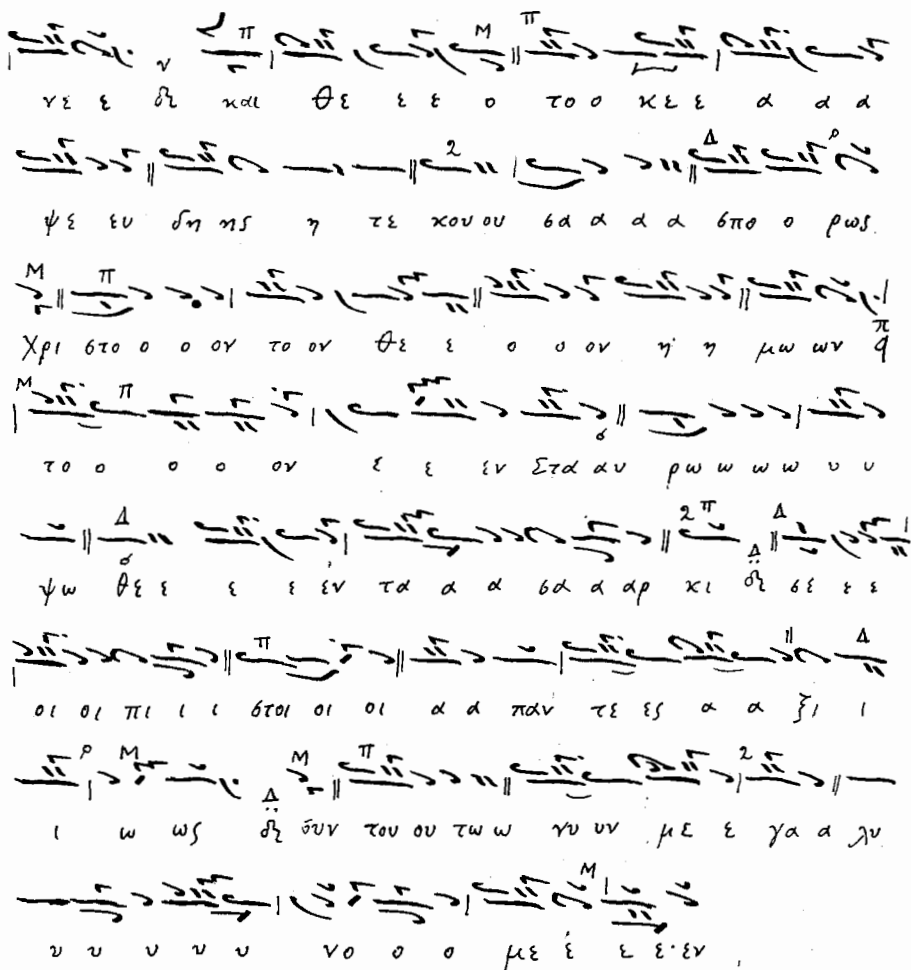 νε ε δι και θε ε ε ο το ο κε ε α α α
ψε ευ δη ης η τε κου ου σα α α α σπο ο ρως
Χρι στο ο ο ον το ον θε ε ο ο ον η η μω ων
το ο ο ο ον ε ε εν Στα αυ ρω ω ω ω υ υ
ψω θε ε ε ε έν τα α α σα α αρ κι δι σε ε ε
οι οι πι ι ι στοι οι οι α α παν τε ες α α ξι ι
ι ω ως δι συν του ου τω ω νυ υν με ε γα α λυ
υ υ υ υ υ νο ο ο με έ ε ε·εν